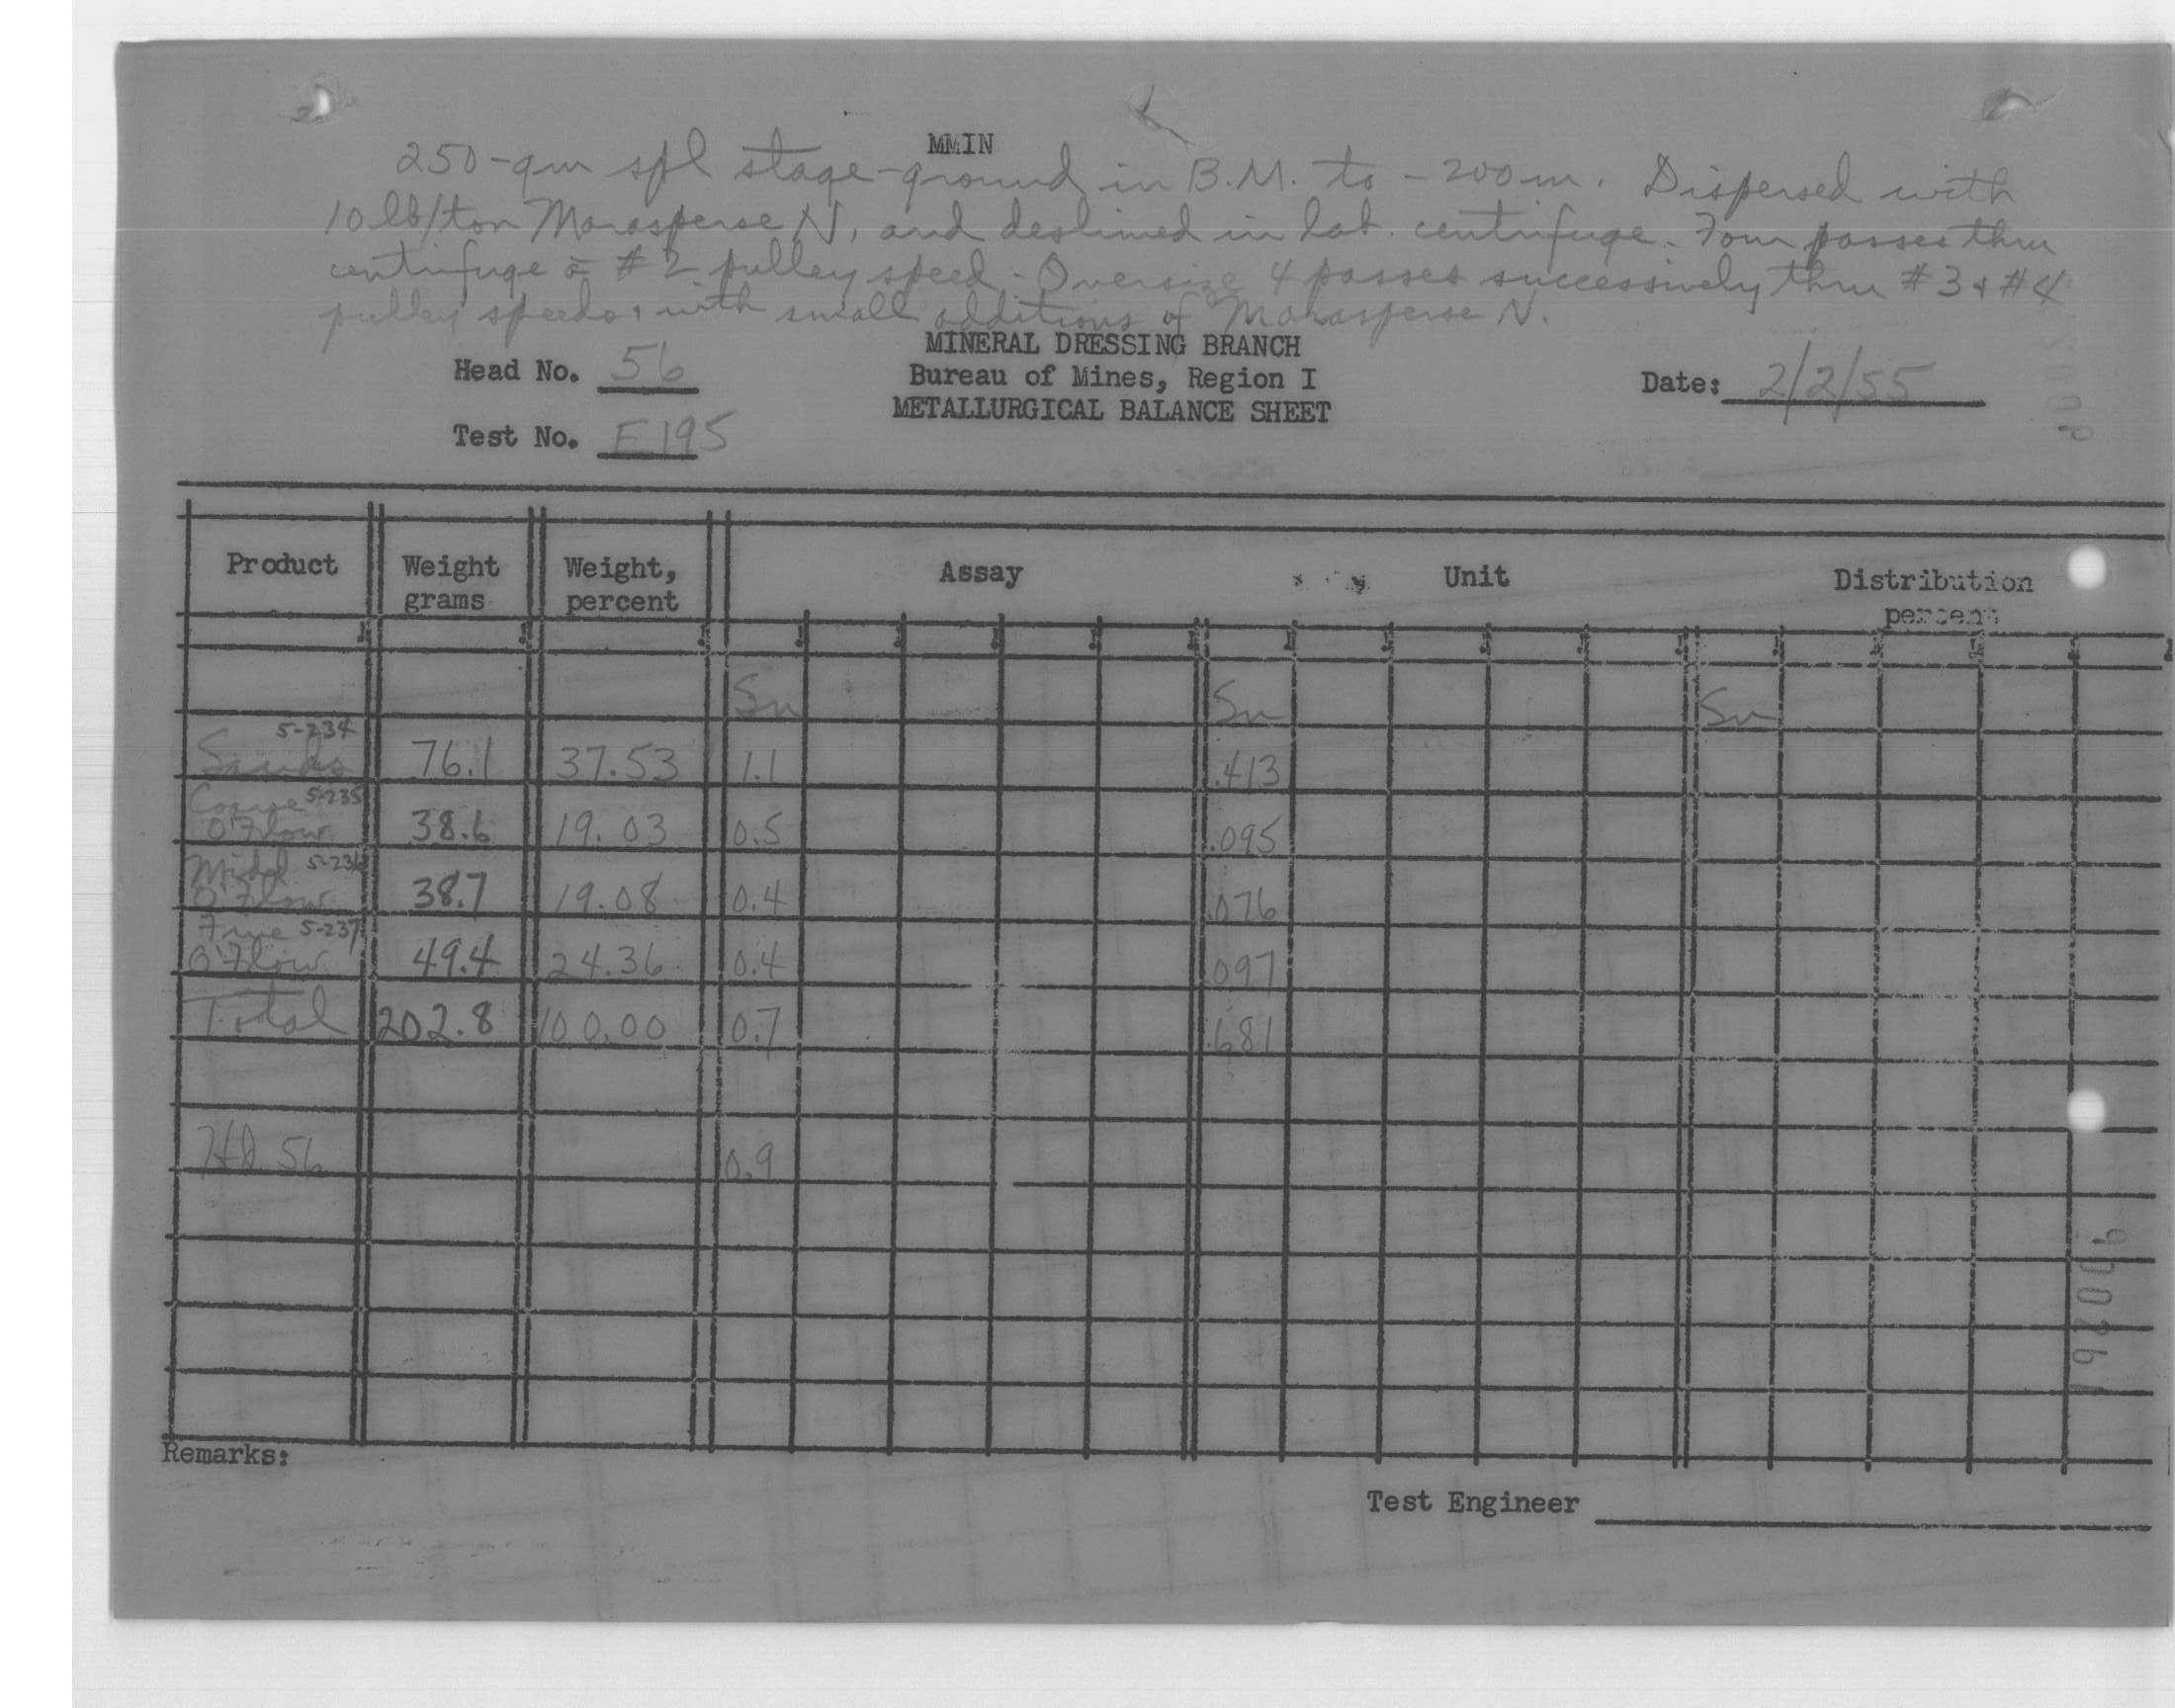 MMIN
250-gm spl stage-ground in B.M. to -200m. Dispersed with
10 lb/ton Marasperse N, and deslimed in lab. centrifuge. Four passes thru
centrifuge @ #2 pulley speed. Oversize 4 passes successively thru #3 & #4
pulley speeds, with small additions of Marasperse N.
MINERAL DRESSING BRANCH
Head No. 56 Bureau of Mines, Region I Date: 2/2/55
METALLURGICAL BALANCE SHEET
Test No. E195
Product Weight grams Weight, percent Assay Unit Distribution percent
Sn Sn Sn
Sands 5-234 76.1 37.53 1.1 .413
Coarse 5-235 O'Flow 38.6 19.03 0.5 .095
Midd 5-236 O'Flow 38.7 19.08 0.4 .076
Fine 5-237 O'Flow 49.4 24.36 0.4 .097
Total 202.8 100.00 0.7 .681
Hd 56 0.9
Remarks:
Test Engineer